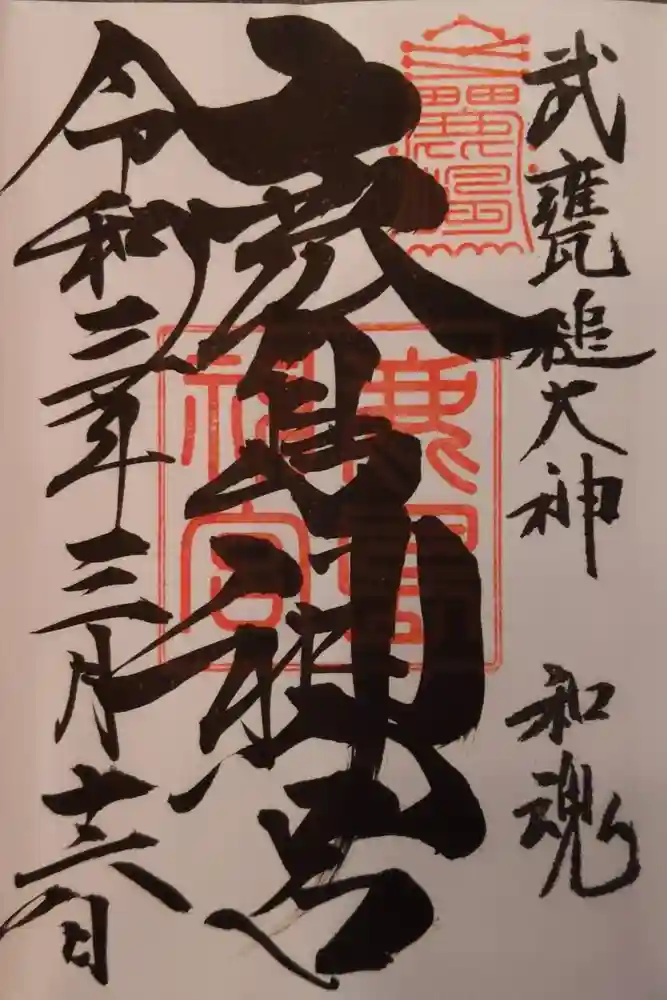 武甕槌大神 和魂
鹿島神宮
鹿島
神宮
令和三年三月十六日